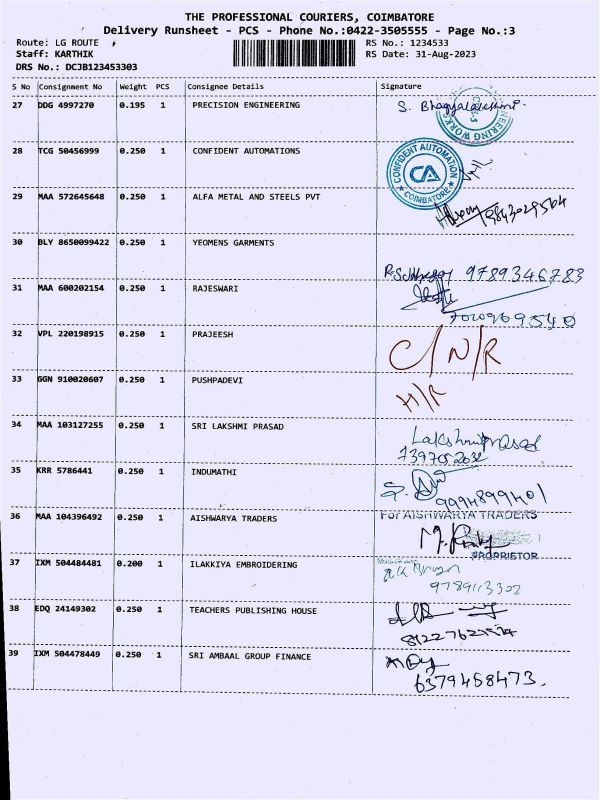 THE PROFESSIONAL COURIERS, COIMBATORE
Delivery Runsheet - PCS - Phone No.:0422-3505555 - Page No.:3
Route: LG ROUTE RS No.: 1234533
Staff: KARTHIK RS Date: 31-Aug-2023
DRS No.: DCJB123453303
S No Consignment No Weight PCS Consignee Details Signature
27 DDG 4997270 0.195 1 PRECISION ENGINEERING S. Bhagyalakshmi
28 TCG 50456999 0.250 1 CONFIDENT AUTOMATIONS CONFIDENT AUTOMATION CA COIMBATORE
29 MAA 572645648 0.250 1 ALFA METAL AND STEELS PVT 9843029564
30 BLY 8650099422 0.250 1 YEOMENS GARMENTS 9789346783
31 MAA 600202154 0.250 1 RAJESWARI
32 VPL 220198915 0.250 1 PRAJEESH C/N/R
33 GGN 910020607 0.250 1 PUSHPADEVI H/R
34 MAA 103127255 0.250 1 SRI LAKSHMI PRASAD Lakshmi Prasad
7397052032
35 KRR 5786441 0.250 1 INDUMATHI
9994899401
36 MAA 104396492 0.250 1 AISHWARYA TRADERS For AISHWARYA TRADERS
PROPRIETOR
37 IXM 504484481 0.200 1 ILAKKIYA EMBROIDERING
9789113302
38 EDQ 24149302 0.250 1 TEACHERS PUBLISHING HOUSE
39 IXM 504478449 0.250 1 SRI AMBAAL GROUP FINANCE
6379458473.